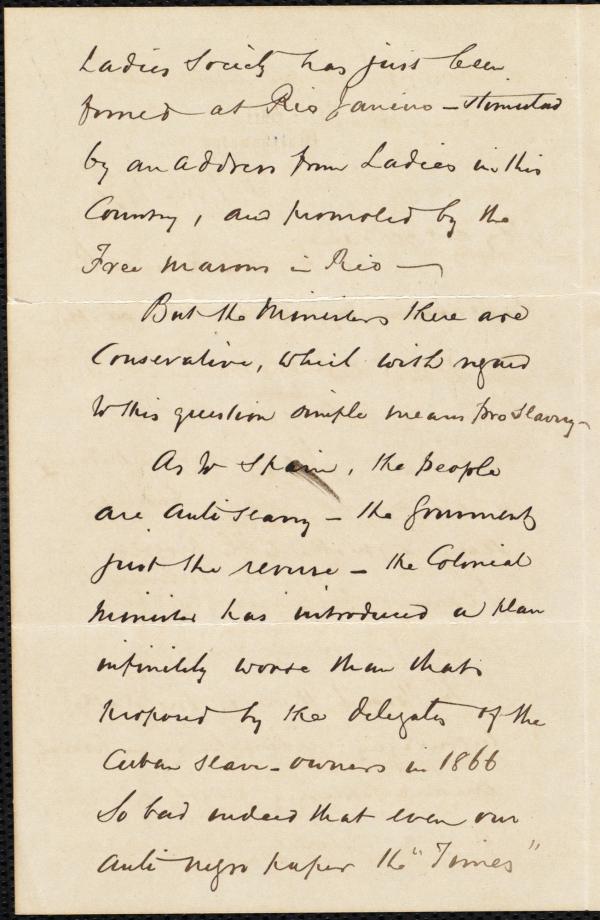 Ladies Society has just been
formed at Rio Janeiro – stimulated
by an address from Ladies in this
Country, and promoted by the
Free Masons in Rio —
But the Ministers there are
Conservative, which with regard
to this question simple means pro slavery –
As to Spain, the people
are anti slavery – the government
just the reverse – the Colonial
Minister has introduced a plan
infinitely worse than that
proposed by the delegates of the
Cuban slave-owners in 1866
So bad indeed that even our
anti negro paper the "Times"